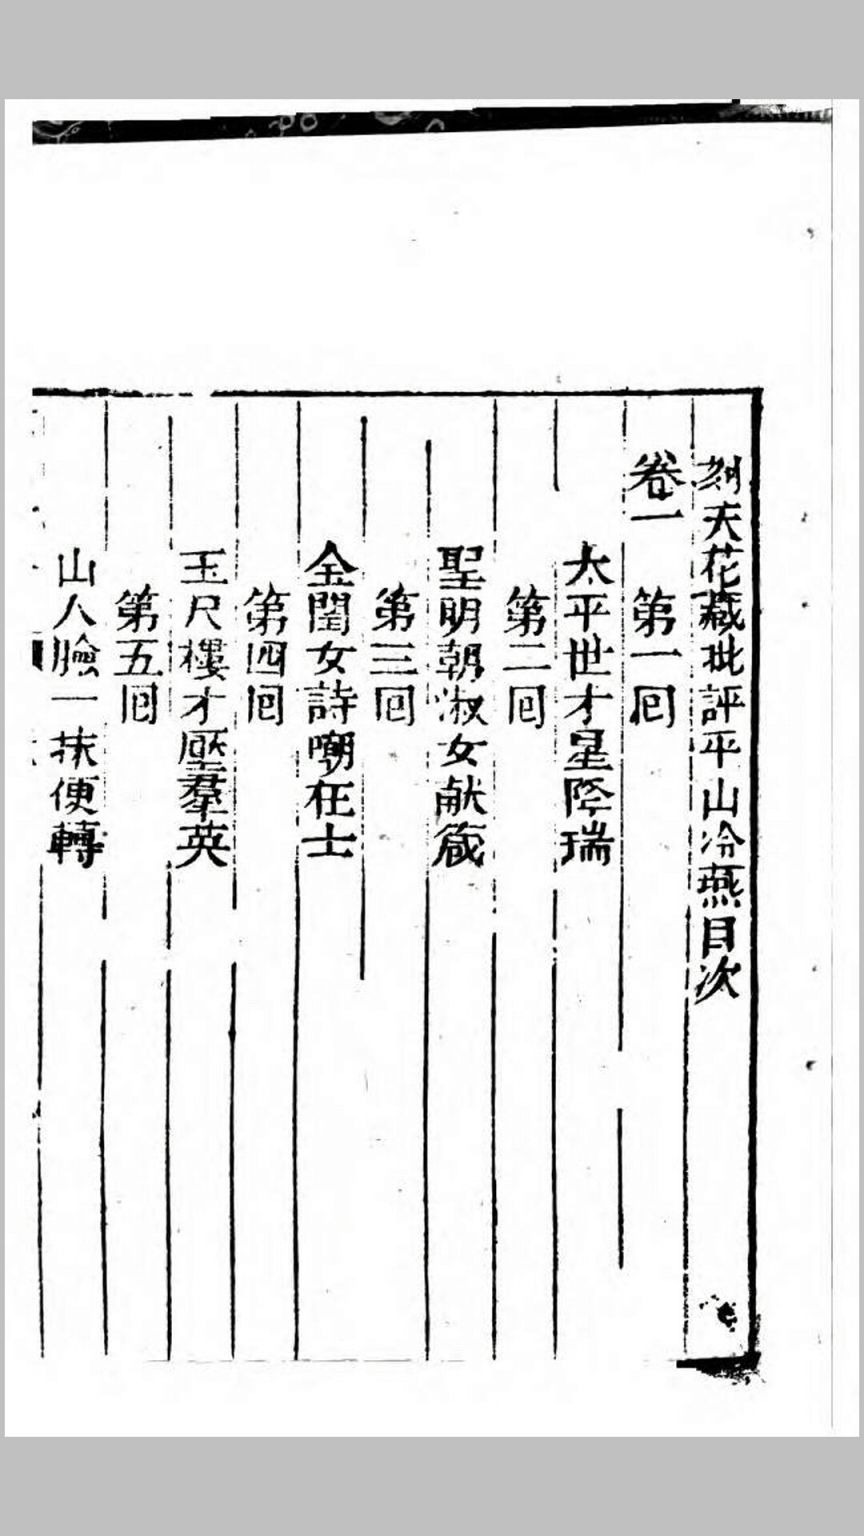 刻天花藏批評平山冷燕目次
卷一 第一囘
太平世才星降瑞
第二囘
聖明朝淑女献箴
第三囘
金閨女詩嘲狂士
第四囘
玉尺樓才壓羣英
第五囘
山人臉一抹便轉